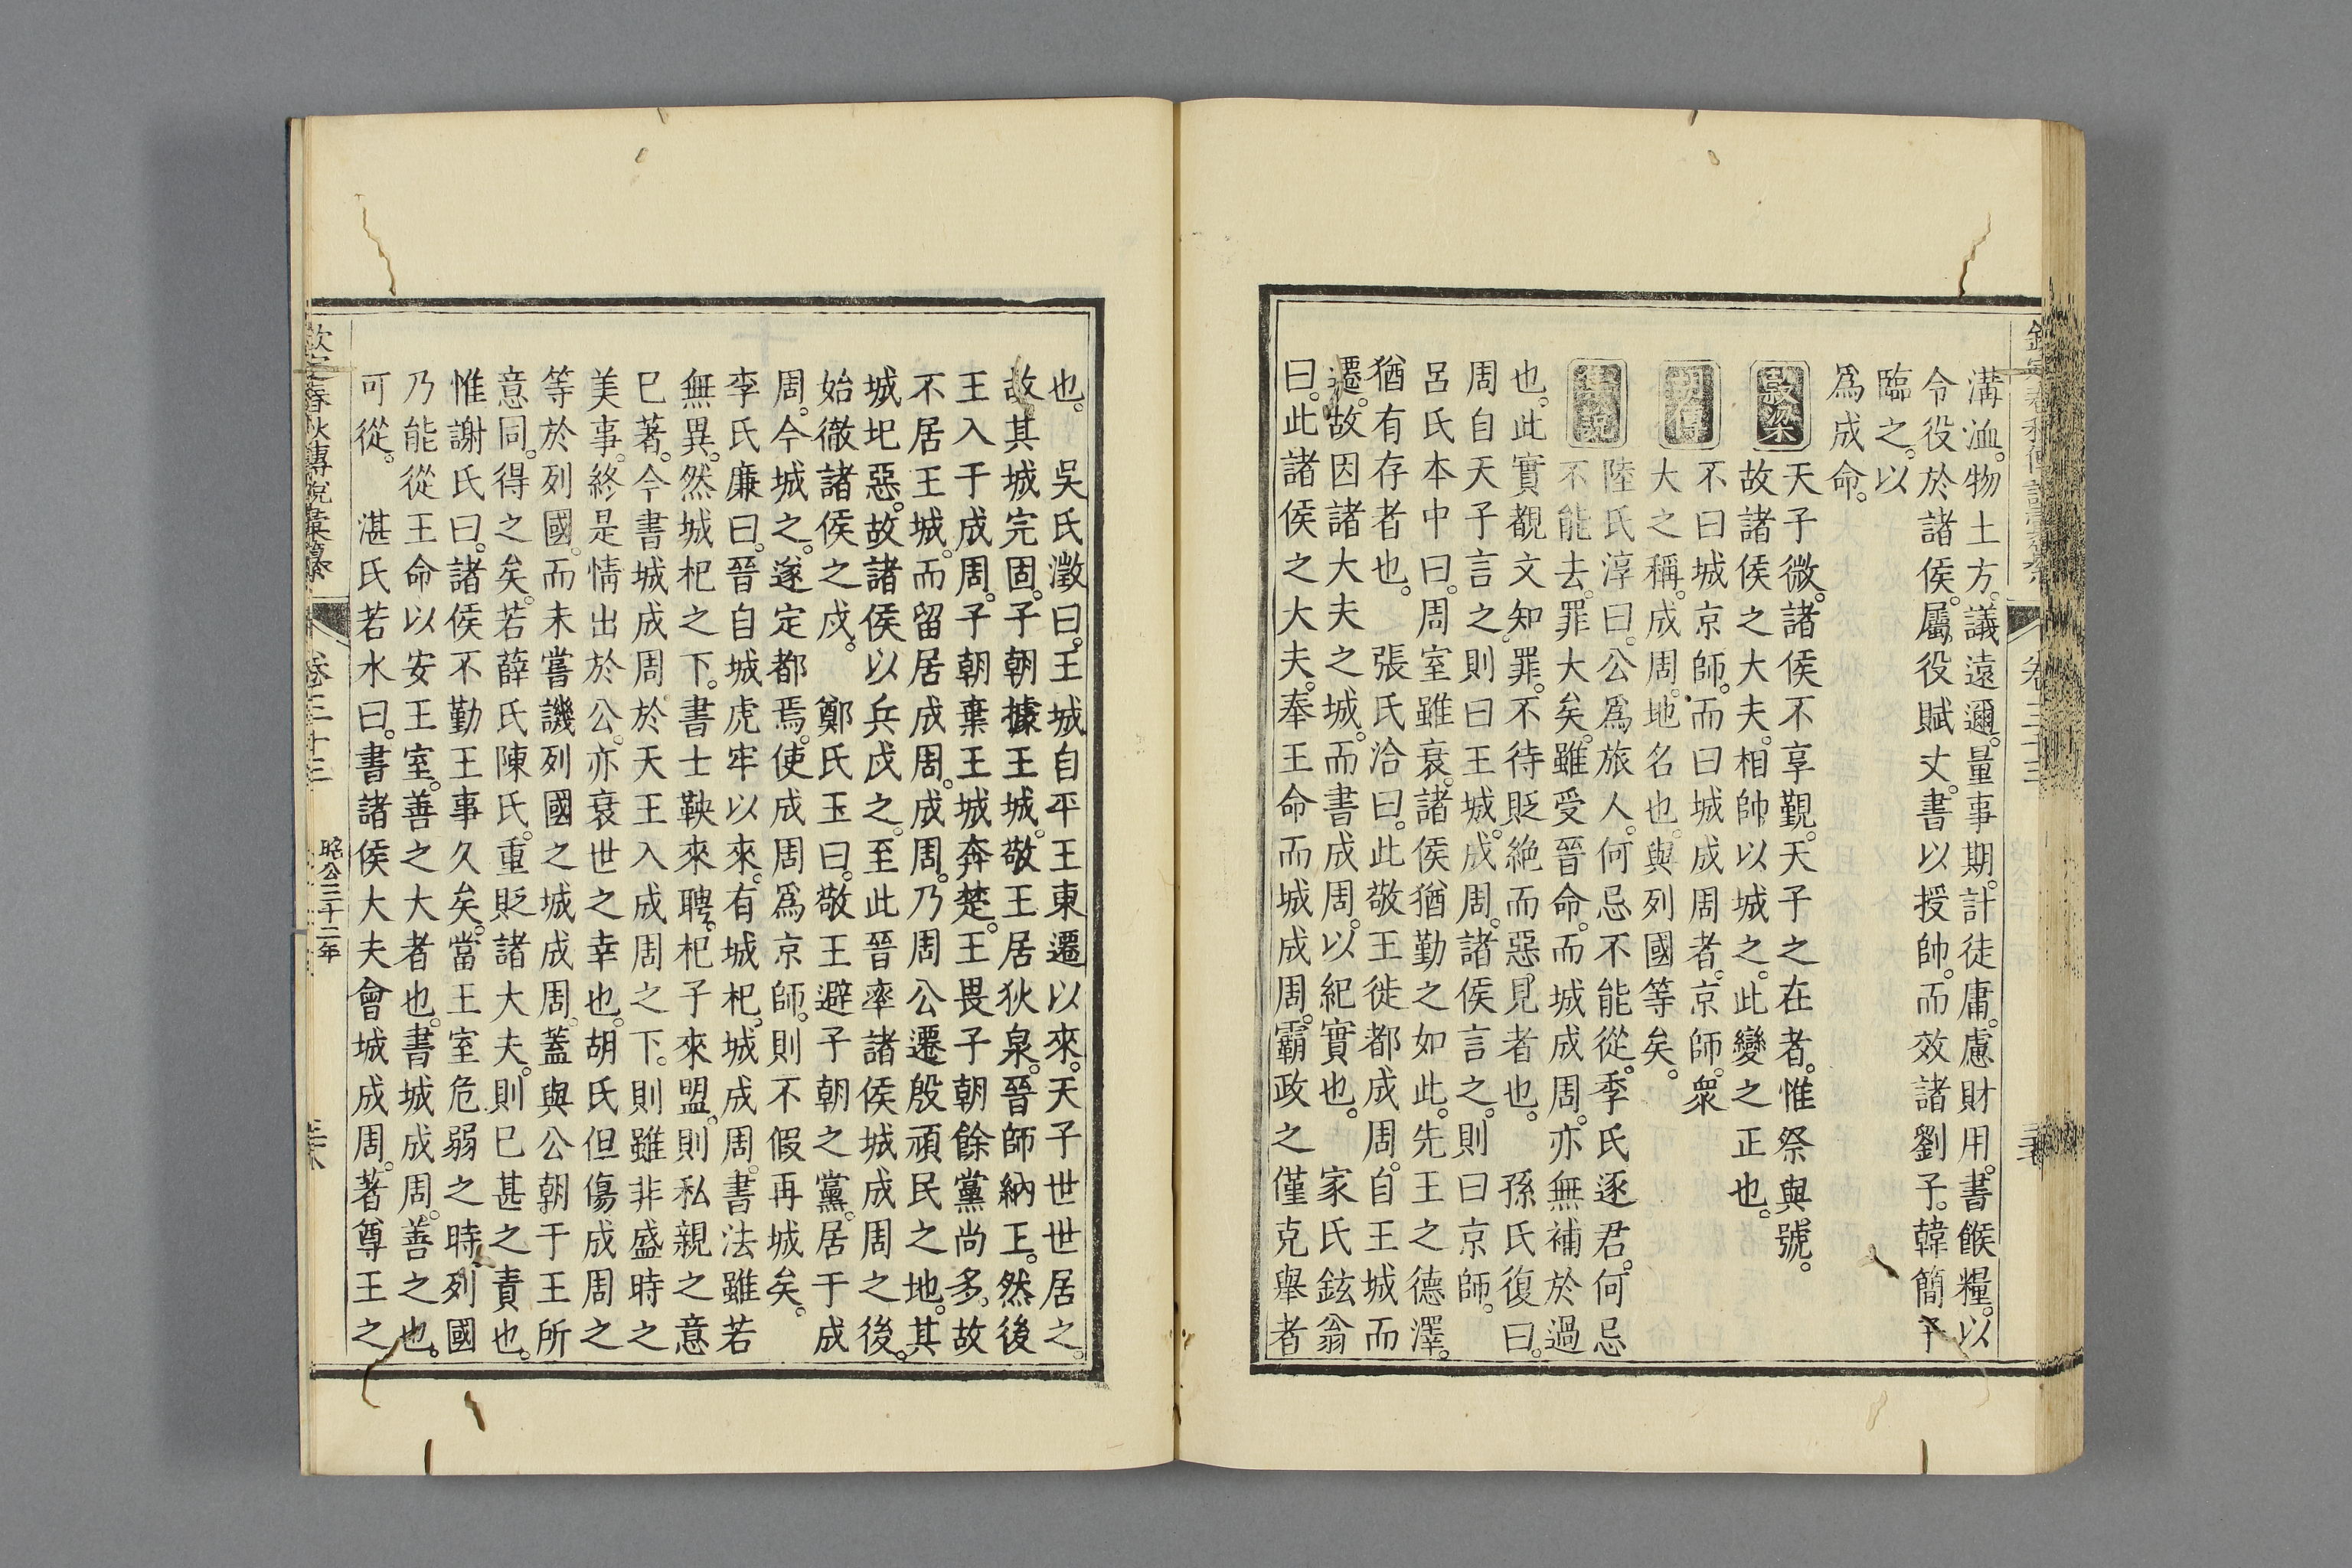 溝洫。物土方。議遠邇。量事期。計徒庸。慮財用。書餱糧。以
令役於諸侯。屬役賦丈。書以授帥。而效諸劉子。韓簡子
臨之。以
爲成命。
穀梁 天子微。諸侯不享覲。天子之在者。惟祭與號。
故諸侯之大夫。相帥以城之。此變之正也。
不曰城京師。而曰城成周者。京師。衆
胡傳 大之稱。成周。地名也。與列國等矣。
陸氏淳曰。公爲旅人。何忌不能從。季氏逐君。何忌
集說 不能去。罪大矣。雖受晉命。而城成周。亦無補於過
也。此實覩文知罪。不待貶絶而惡見者也。 孫氏復曰。
周自天子言之。則曰王城。成周。諸侯言之。則曰京師。
呂氏本中曰。周室雖衰。諸侯猶勤之如此。先王之德澤。
猶有存者也。 張氏洽曰。此敬王徙都成周。自王城而
遷。故因諸大夫之城。而書成周。以紀實也。 家氏鉉翁
曰。此諸侯之大夫。奉王命而城成周。霸政之僅克舉者
也。 吳氏澂曰。王城自平王東遷以來。天子世世居之。
故其城完固。子朝據王城。敬王居狄泉。晉師納王。然後
王入于成周。子朝棄王城奔楚。王畏子朝餘黨尚多。故
不居王城。而留居成周。成周。乃周公遷殷頑民之地。其
城圯惡。故諸侯以兵戍之。至此晉率諸侯城成周之後。
始徹諸侯之戍。 鄭氏玉曰。敬王避子朝之黨。居于成
周。今城之。遂定都焉。使成周爲京師。則不假再城矣。
李氏廉曰。晉自城虎牢以來。有城杞。城成周。書法雖若
無異。然城杞之下。書士鞅來聘。杞子來盟。則私親之意
巳著。今書城成周於天王入成周之下。則雖非盛時之
美事。終是情出於公。亦衰世之幸也。胡氏但傷成周之
等於列國。而未嘗譏列國之城成周。蓋與公朝于王所
意同。得之矣。若薛氏陳氏。重貶諸大夫。則巳甚之責也。
惟謝氏曰。諸侯不勤王事久矣。當王室危弱之時。列國
乃能從王命以安王室。善之大者也。書城成周。善之也。
可從。 湛氏若水曰。書諸侯大夫會城成周。著尊王之
欽定春秋傳說彙纂 卷三十三 昭公三十二年